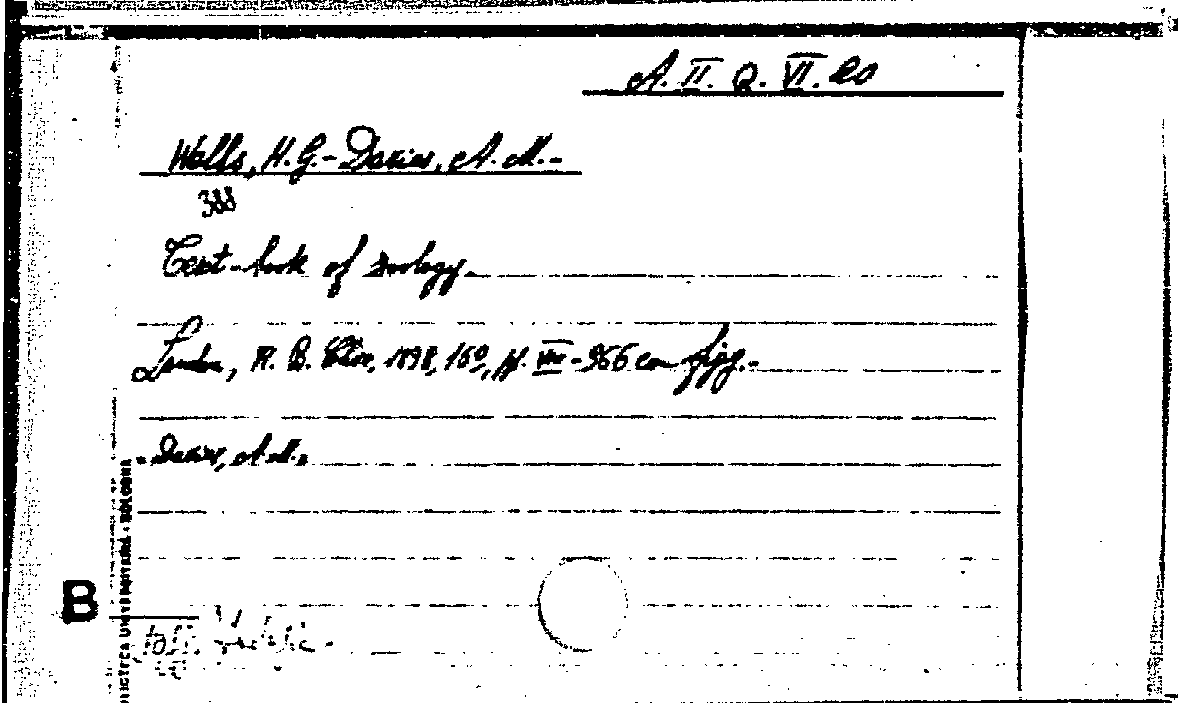 A. II. Q. VI. 20
Wells, H. G. - Davies, A. M. -
388
Text-book of zoology.
London, W. B. Clive, 1898, 16º, pp. VIII - 366 con figg. -
- Davies, A. M. -
BIBLIOTECA UNIVERSITARIA - BOLOGNA
B